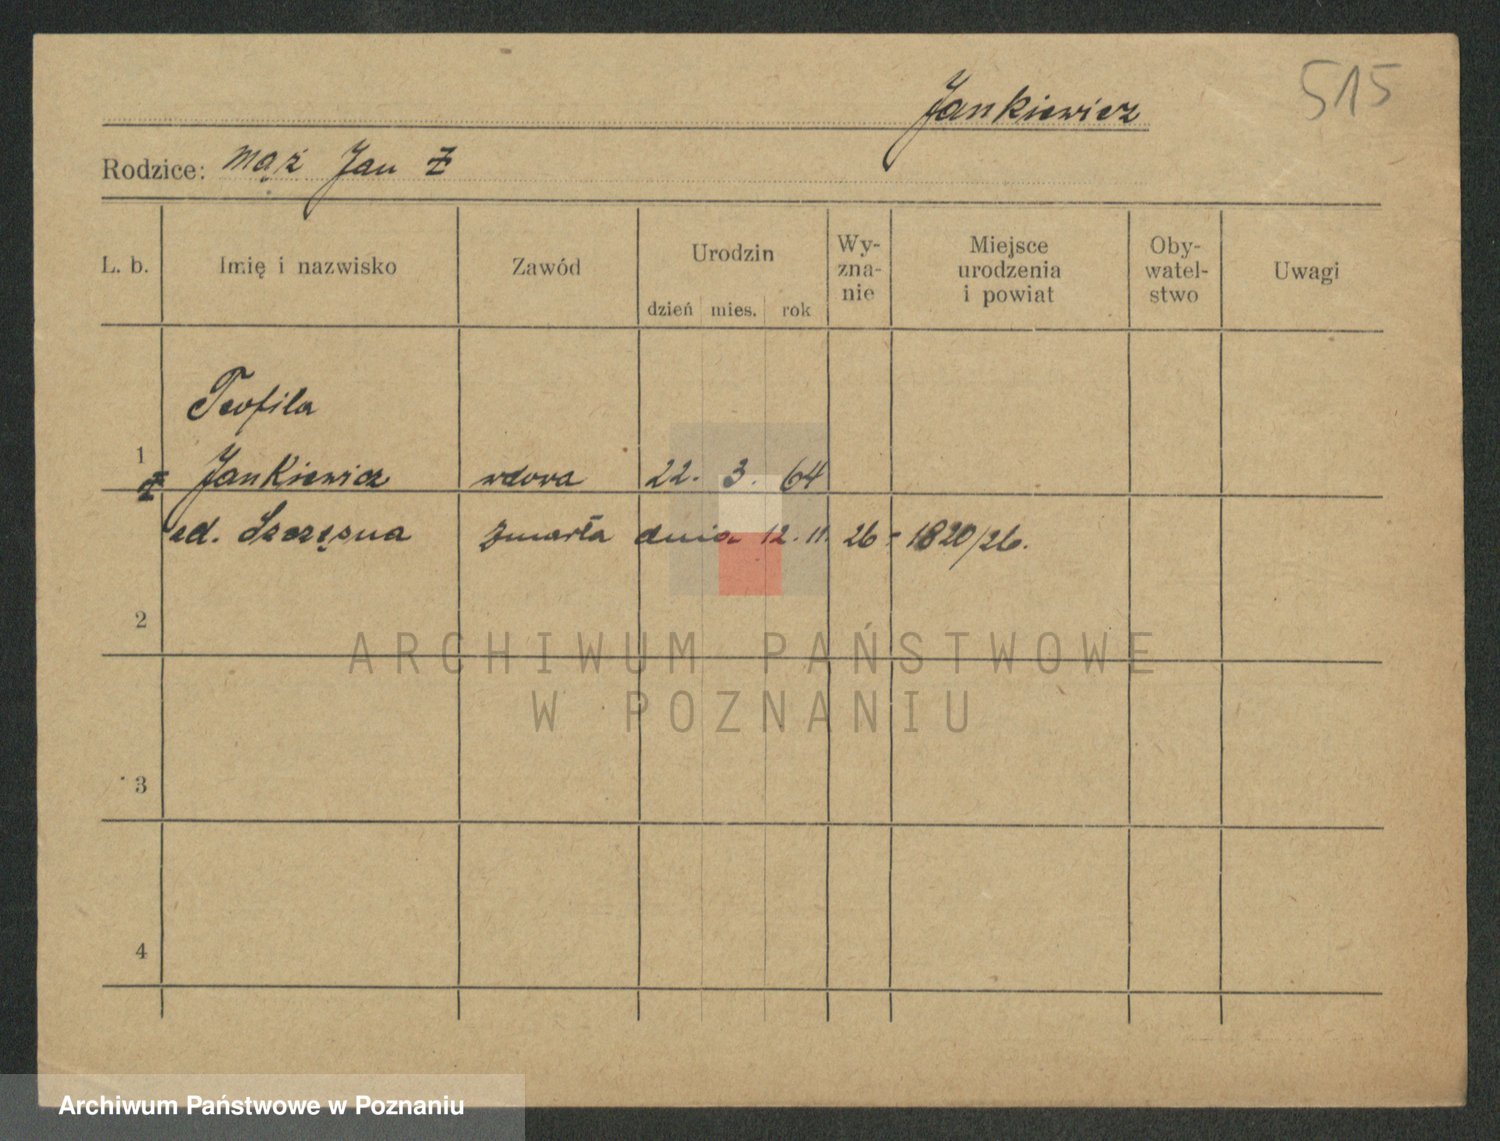 515
Jankiewicz
Rodzice: mąż Jan
L. b. Imię i nazwisko Zawód Urodzin dzień mies. rok Wy-zna-nie Miejsce urodzenia i powiat Oby-watel-stwo Uwagi
Teofila
1 Jankiewicz wdowa 22. 3. 64
zd. Szczęsna zmarła dnia 12. 11. 26 = 1820/26.
2
3
4
ARCHIWUM PAŃSTWOWE
W POZNANIU
Archiwum Państwowe w Poznaniu